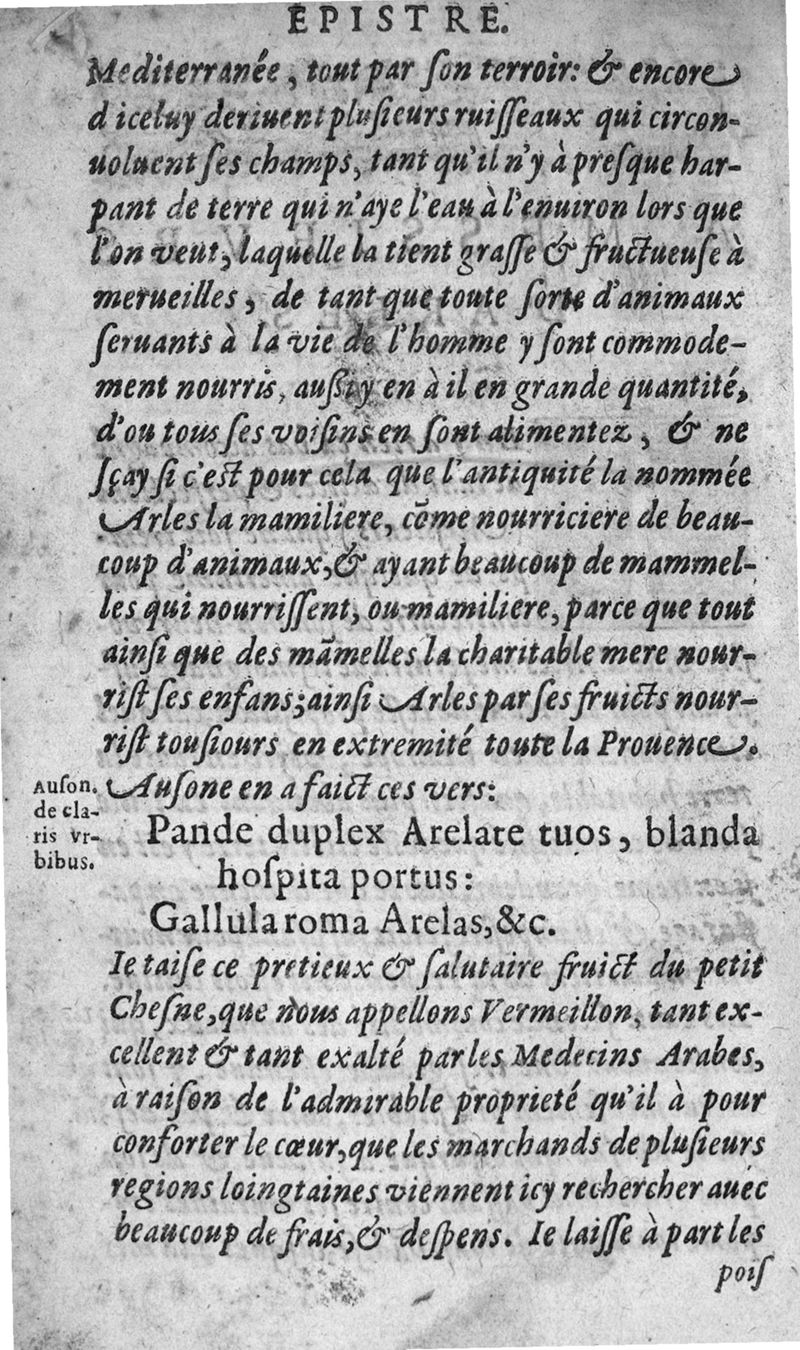 EPISTRE.
Mediterranée, tout par ſon terroir: & encore
d'iceluy deriuent pluſieurs ruiſſeaux qui circon-
uoluent ſes champs, tant qu'il n'y à preſque har-
pant de terre qui n'aye l'eau à l'enuiron lors que
l'on veut, laquelle la tient graſſe & fructueuſe à
merueilles, de tant que toute ſorte d'animaux
ſeruants à la vie de l'homme y ſont commode-
ment nourris, auſsi y en à il en grande quantité,
d'ou tous ſes voiſins en ſont alimentez, & ne
ſçay ſi c'eſt pour cela que l'antiquité la nommée
Arles la mamiliere, cōme nourriciere de beau-
coup d'animaux, & ayant beaucoup de mammel-
les qui nourriſſent, ou mamiliere, parce que tout
ainſi que des mām̄elles la charitable mere nour-
riſt ſes enfans; ainſi Arles par ſes fruicts nour-
riſt touſiours en extremité toute la Prouence.
Auſone en a faict ces vers:
Auſon.
de cla-
ris vr-
bibus.
Pande duplex Arelate tuos, blanda
hoſpita portus:
Gallula roma Arelas, &c.
Ie taiſe ce pretieux & ſalutaire fruict du petit
Cheſne, que nous appellons Vermeillon, tant ex-
cellent & tant exalté par les Medecins Arabes,
à raiſon de l'admirable proprieté qu'il à pour
conforter le cœur, que les marchands de pluſieurs
regions loingtaines viennent icy rechercher auec
beaucoup de frais, & deſpens. Ie laiſſe à part les
poiſ